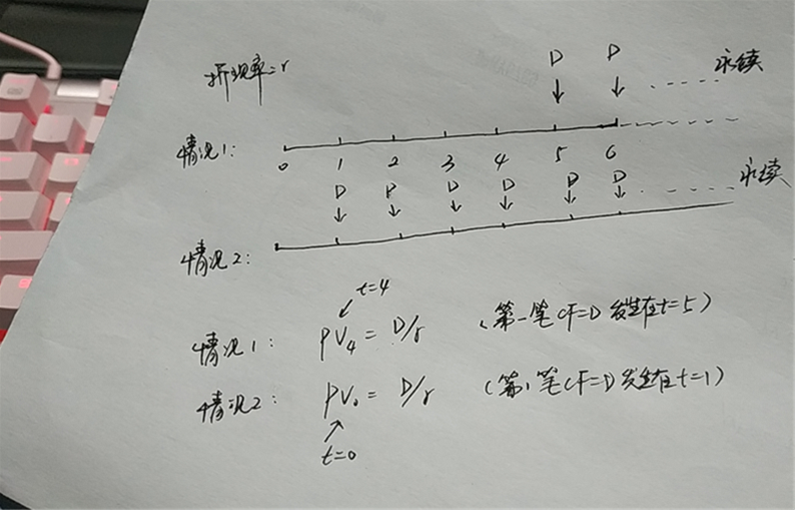 折现率=r
D D 永续
情况1:
0 1 2 3 4 5 6
D D D D D D 永续
情况2:
t=4
情况1: PV₄= D/r (第一笔CF=D发生在t=5)
情况2: PV₀= D/r (第1笔CF=D发生在t=1)
t=0